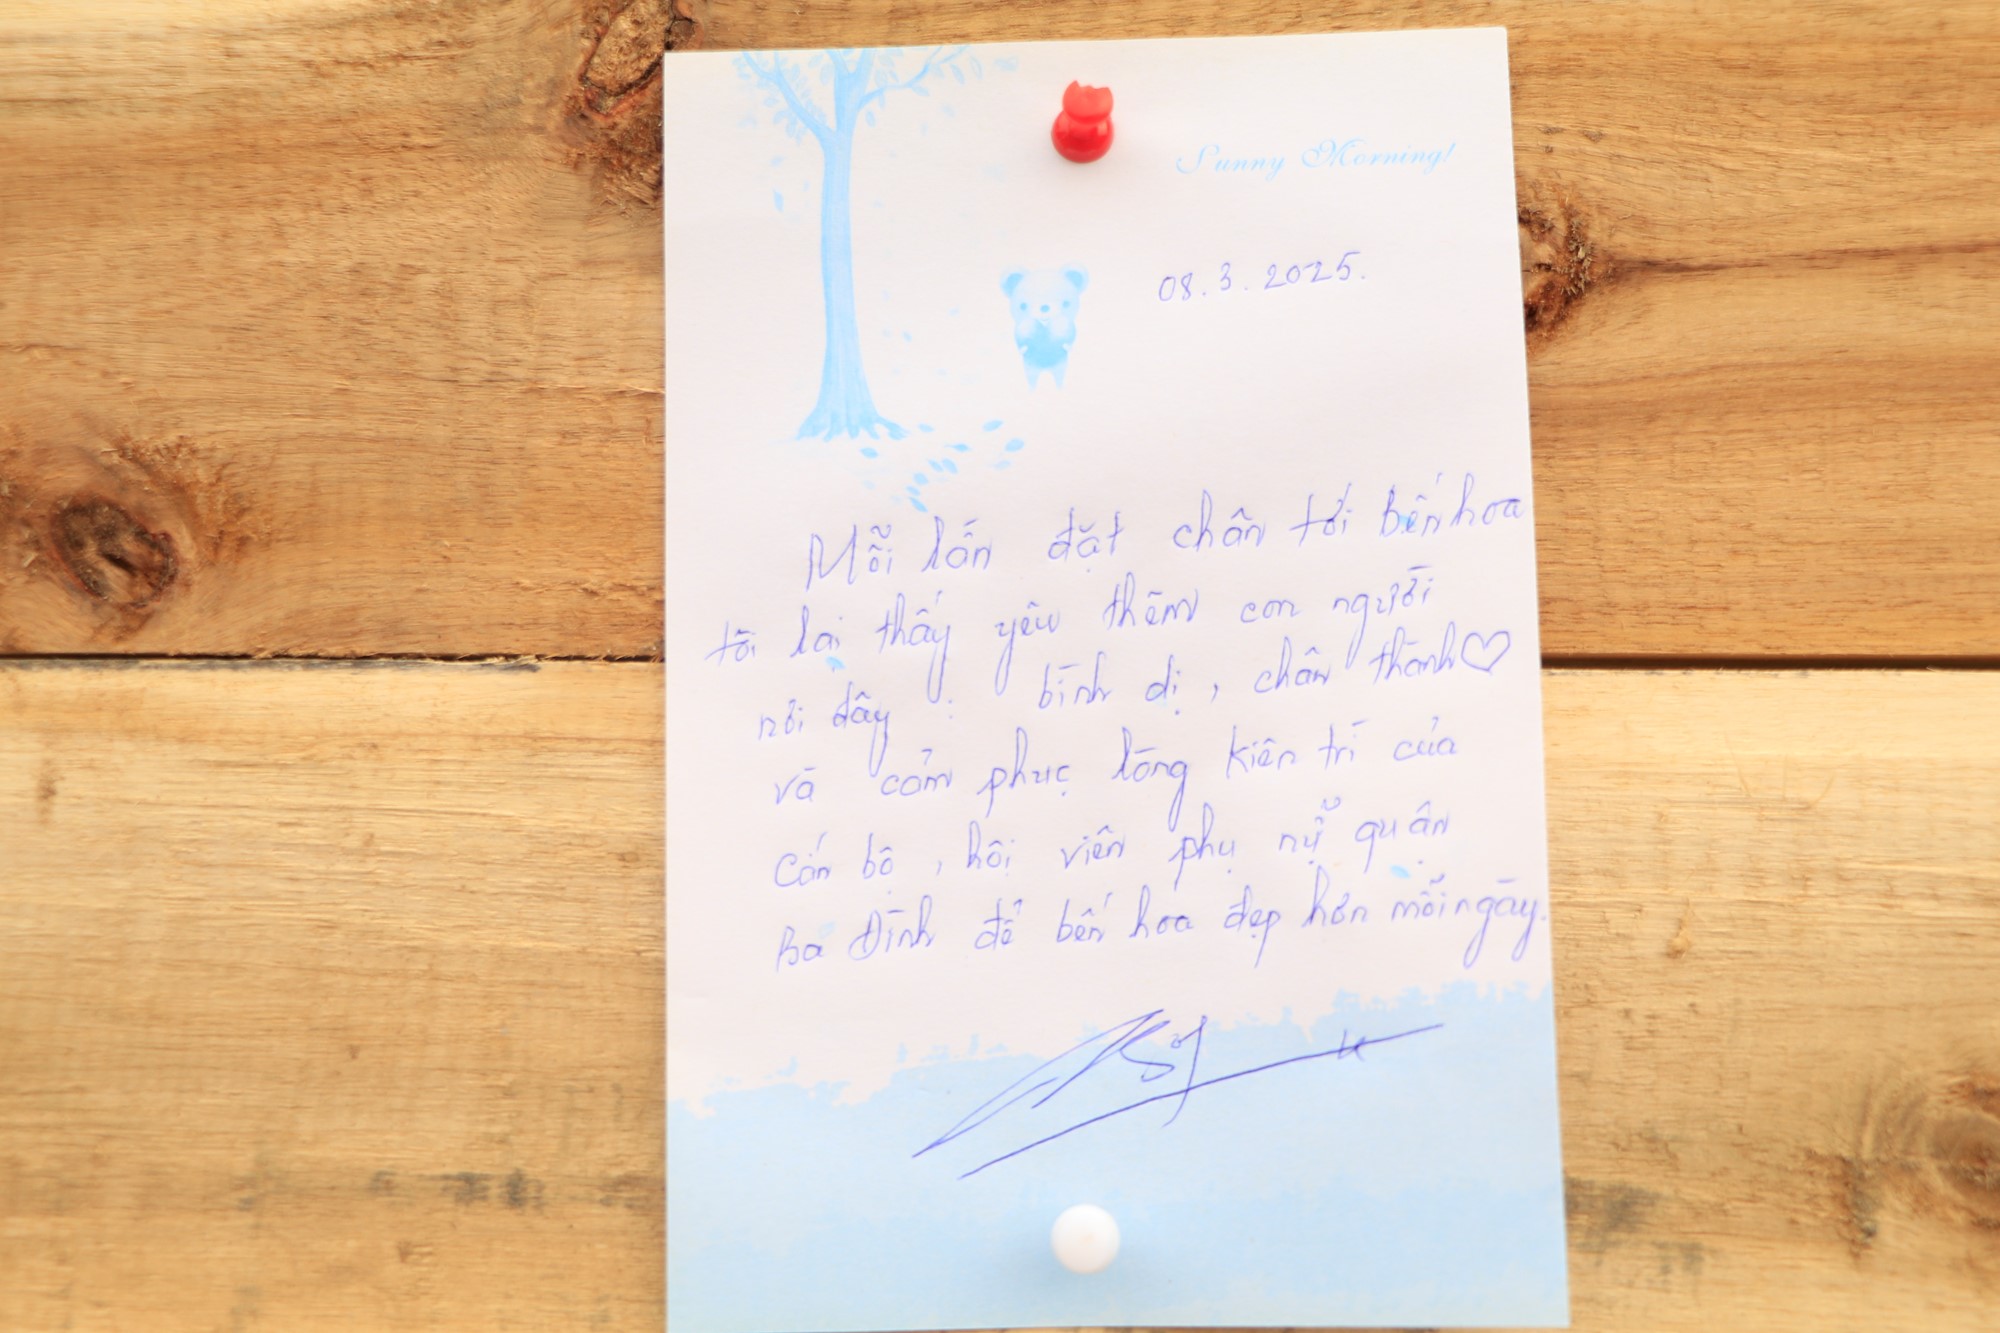 Sunny Morning!
08.3.2025.
Mỗi lần đặt chân tới bến hoa
tôi lại thấy yêu thêm con người
nơi đây : bình dị, chân thành ♡
và cảm phục lòng kiên trì của
cán bộ, hội viên phụ nữ quận
Ba Đình để bến hoa đẹp hơn mỗi ngày.